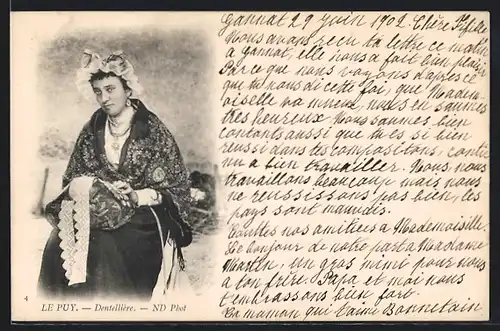 Gannat 29 Juin 1902. Chère Fifille
Nous avons reçu ta lettre ce matin
a Gannat, elle nous a fait bien plaisir
Parce que nous voyons d'après ce
que tu nous dis cette fois, que Madem-
oiselle va mieux, nous en sommes
très heureux. Nous sommes bien
contents aussi que tu es si bien
reussi dans tes compositions, contin
nu a bien travailler. Nous, nous
travaillons beaucoup mais nous
ne reussissons pas bien, les
pays sont mauvais.
Toutes nos amitiers a Mademoiselle.
Le bonjour de notre part a Madame
Martin, un gros mimi pour nous
a ton frère. Papa et moi nous
t'embrassons bien fort.
Ta maman qui t'aime Bonnetain
4
LE PUY. — Dentellière. — ND Phot